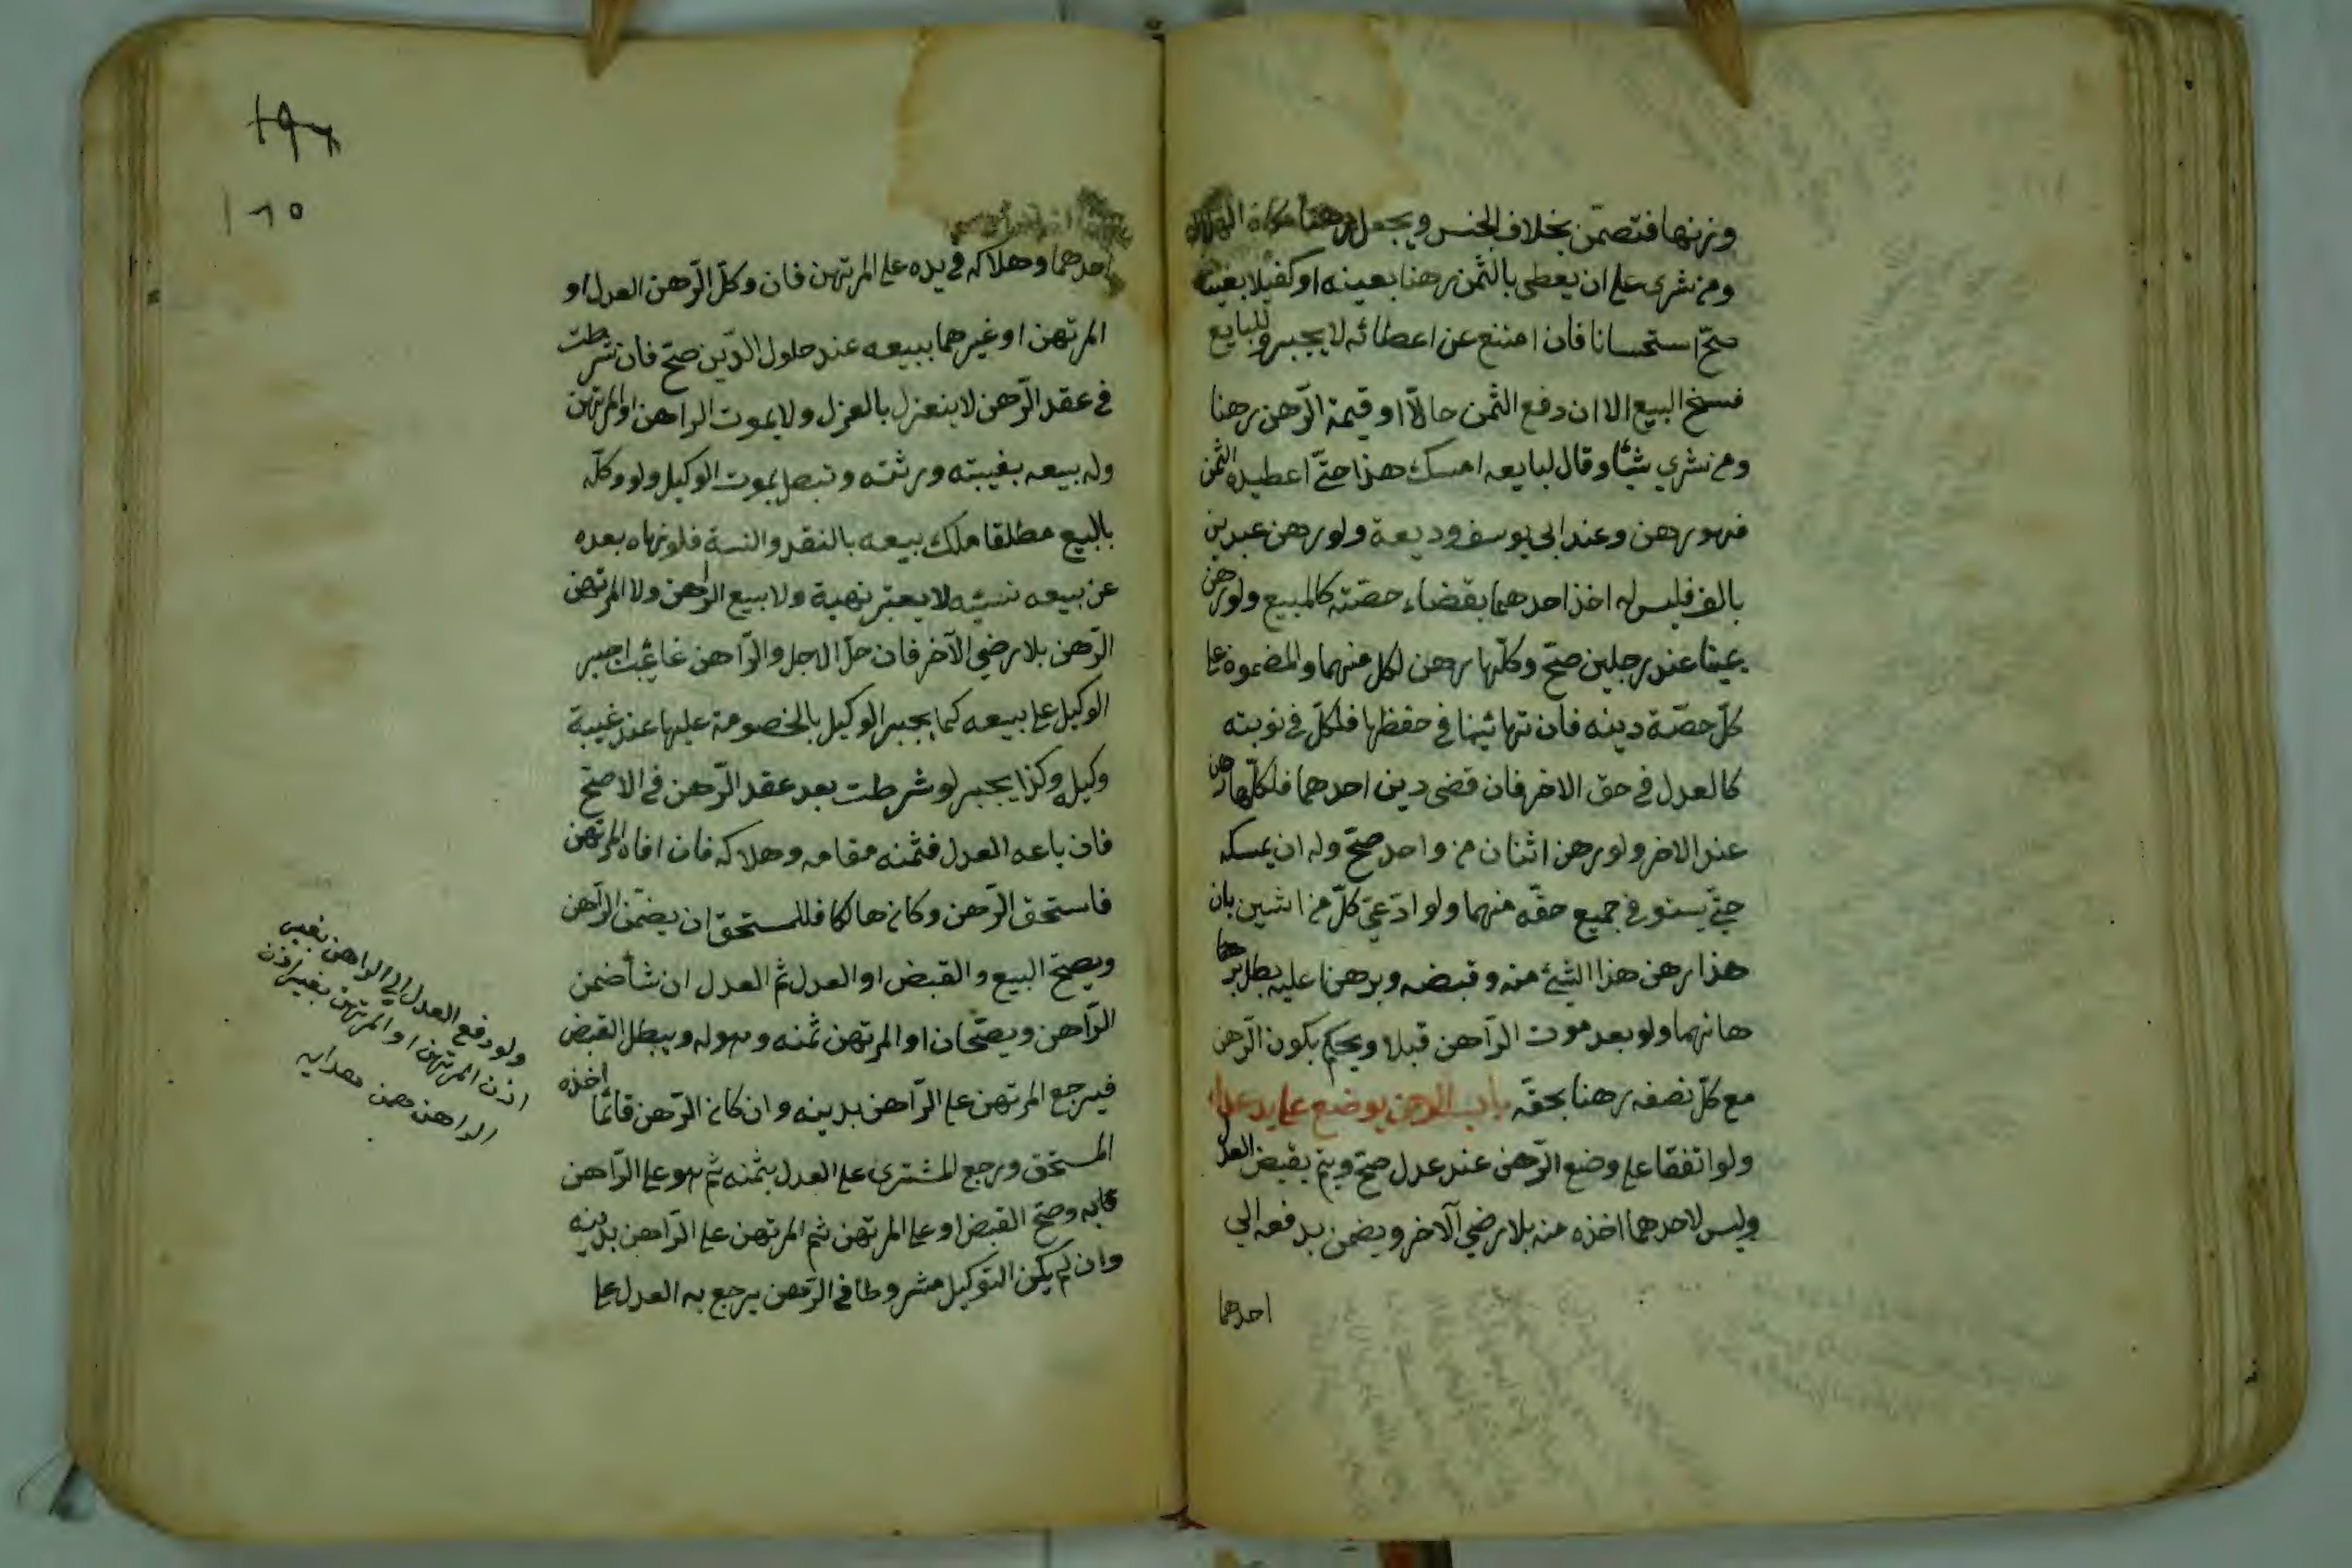 وزنها فتضمّن بخلاف الجنس ويجعل رهنا مكان الهالك
ومن شرى على ان يعطى بالثمن رهنا بعينه او كفيلا بعينه
صحّ استحسانا فان امتنع عن اعطائه لا يجبر وللبايع
فسخ البيع الا ان دفع الثمن حالّا او قيمة الرّهن رهنا
ومن شري شيئا وقال لبايعه امسك هذا حتّى اعطيك الثمن
فهو رهن وعند ابى يوسف وديعة ولو رهن عبدين
بالف فليس له اخذ احدهما بقضاء حصّته كالمبيع ولو رهن
عينا عند رجلين صحّ وكلّها رهن لكل منهما والمضمون على
كلّ حصّة دينه فان تهائيئا في حفظها فلكلّ في نوبته
كالعدل في حق الاخر فان قضى دين احدهما فلكلّها رهن
عند الاخر ولو رهن اثنان من واحد صحّ وله ان يمسكه
حتّى يستوفي جميع حقّه منهما ولو ادّعى كلّ من اثنين بان
هذا رهن هذا الشئ منه وقبضه وبرهنا عليه بطل بر
هانهما ولو بعد موت الرّاهن قبلا ويحكم بكون الرّهن
مع كلّ نصفه رهنا بحقّه باب الرهن يوضع على يد عدل
ولو اتفقا على وضع الرّهن عند عدل صحّ ويتم بقبض العدل
وليس لاحدهما اخذه منه بلا رضي الآخر ويضمن بدفعه الي
احدهما
احدهما وهلاكه في يده على المرتهن فان وكّل الرّاهن العدل او
المرتهن او غيرهما ببيعه عند حلول الدّين صحّ فان شرطت
في عقد الرّهن لا ينعزل بالعزل ولا بموت الراهن او المرتهن
وله بيعه بغيبته ورثته وتبطل بموت الوكيل ولو وكلّه
بالبيع مطلقا ملك بيعه بالنقد والنسة فلو نهاه بعده
عن بيعه نسيئه لا يعتبر نهية ولا ببيع الراهن ولا المرتهن
الرّهن بلا رضي الآخر فان حلّ الاجل والرّاهن غائب اجبر
الوكيل على بيعه كما يجبر الوكيل بالخصومة عليها عند غيبة
وكيله وكذا يجبر لو شرطت بعد عقد الرّهن في الاصحّ
فان باعه العدل فثمنه مقامه وهلاكه فان افاه المرتهن
فاستحق الرّهن وكان هالكا فللمستحق ان يضمّن الرّاهن
ويصحّ البيع والقبض او العدل ثم العدل ان شأ ضمن
الرّاهن ويصحّان او المرتهن ثمنه وهو له ويبطل القبض
فيرجع المرتهن على الرّاهن بدينه وان كان الرّهن قائما اخذه
المستحق ورجع المشترى على العدل بثمنه ثم هو على الرّاهن
به وصحّ القبض او على المرتهن ثم المرتهن على الرّاهن بدينه
وان لم يكن التوكيل مشروطا في الرّهن يرجع به العدل على
ولو دفع العدل الي الراهن بغير
اذن المرتهن او المرتهن بغير اذن
الراهن ضمن هدايه